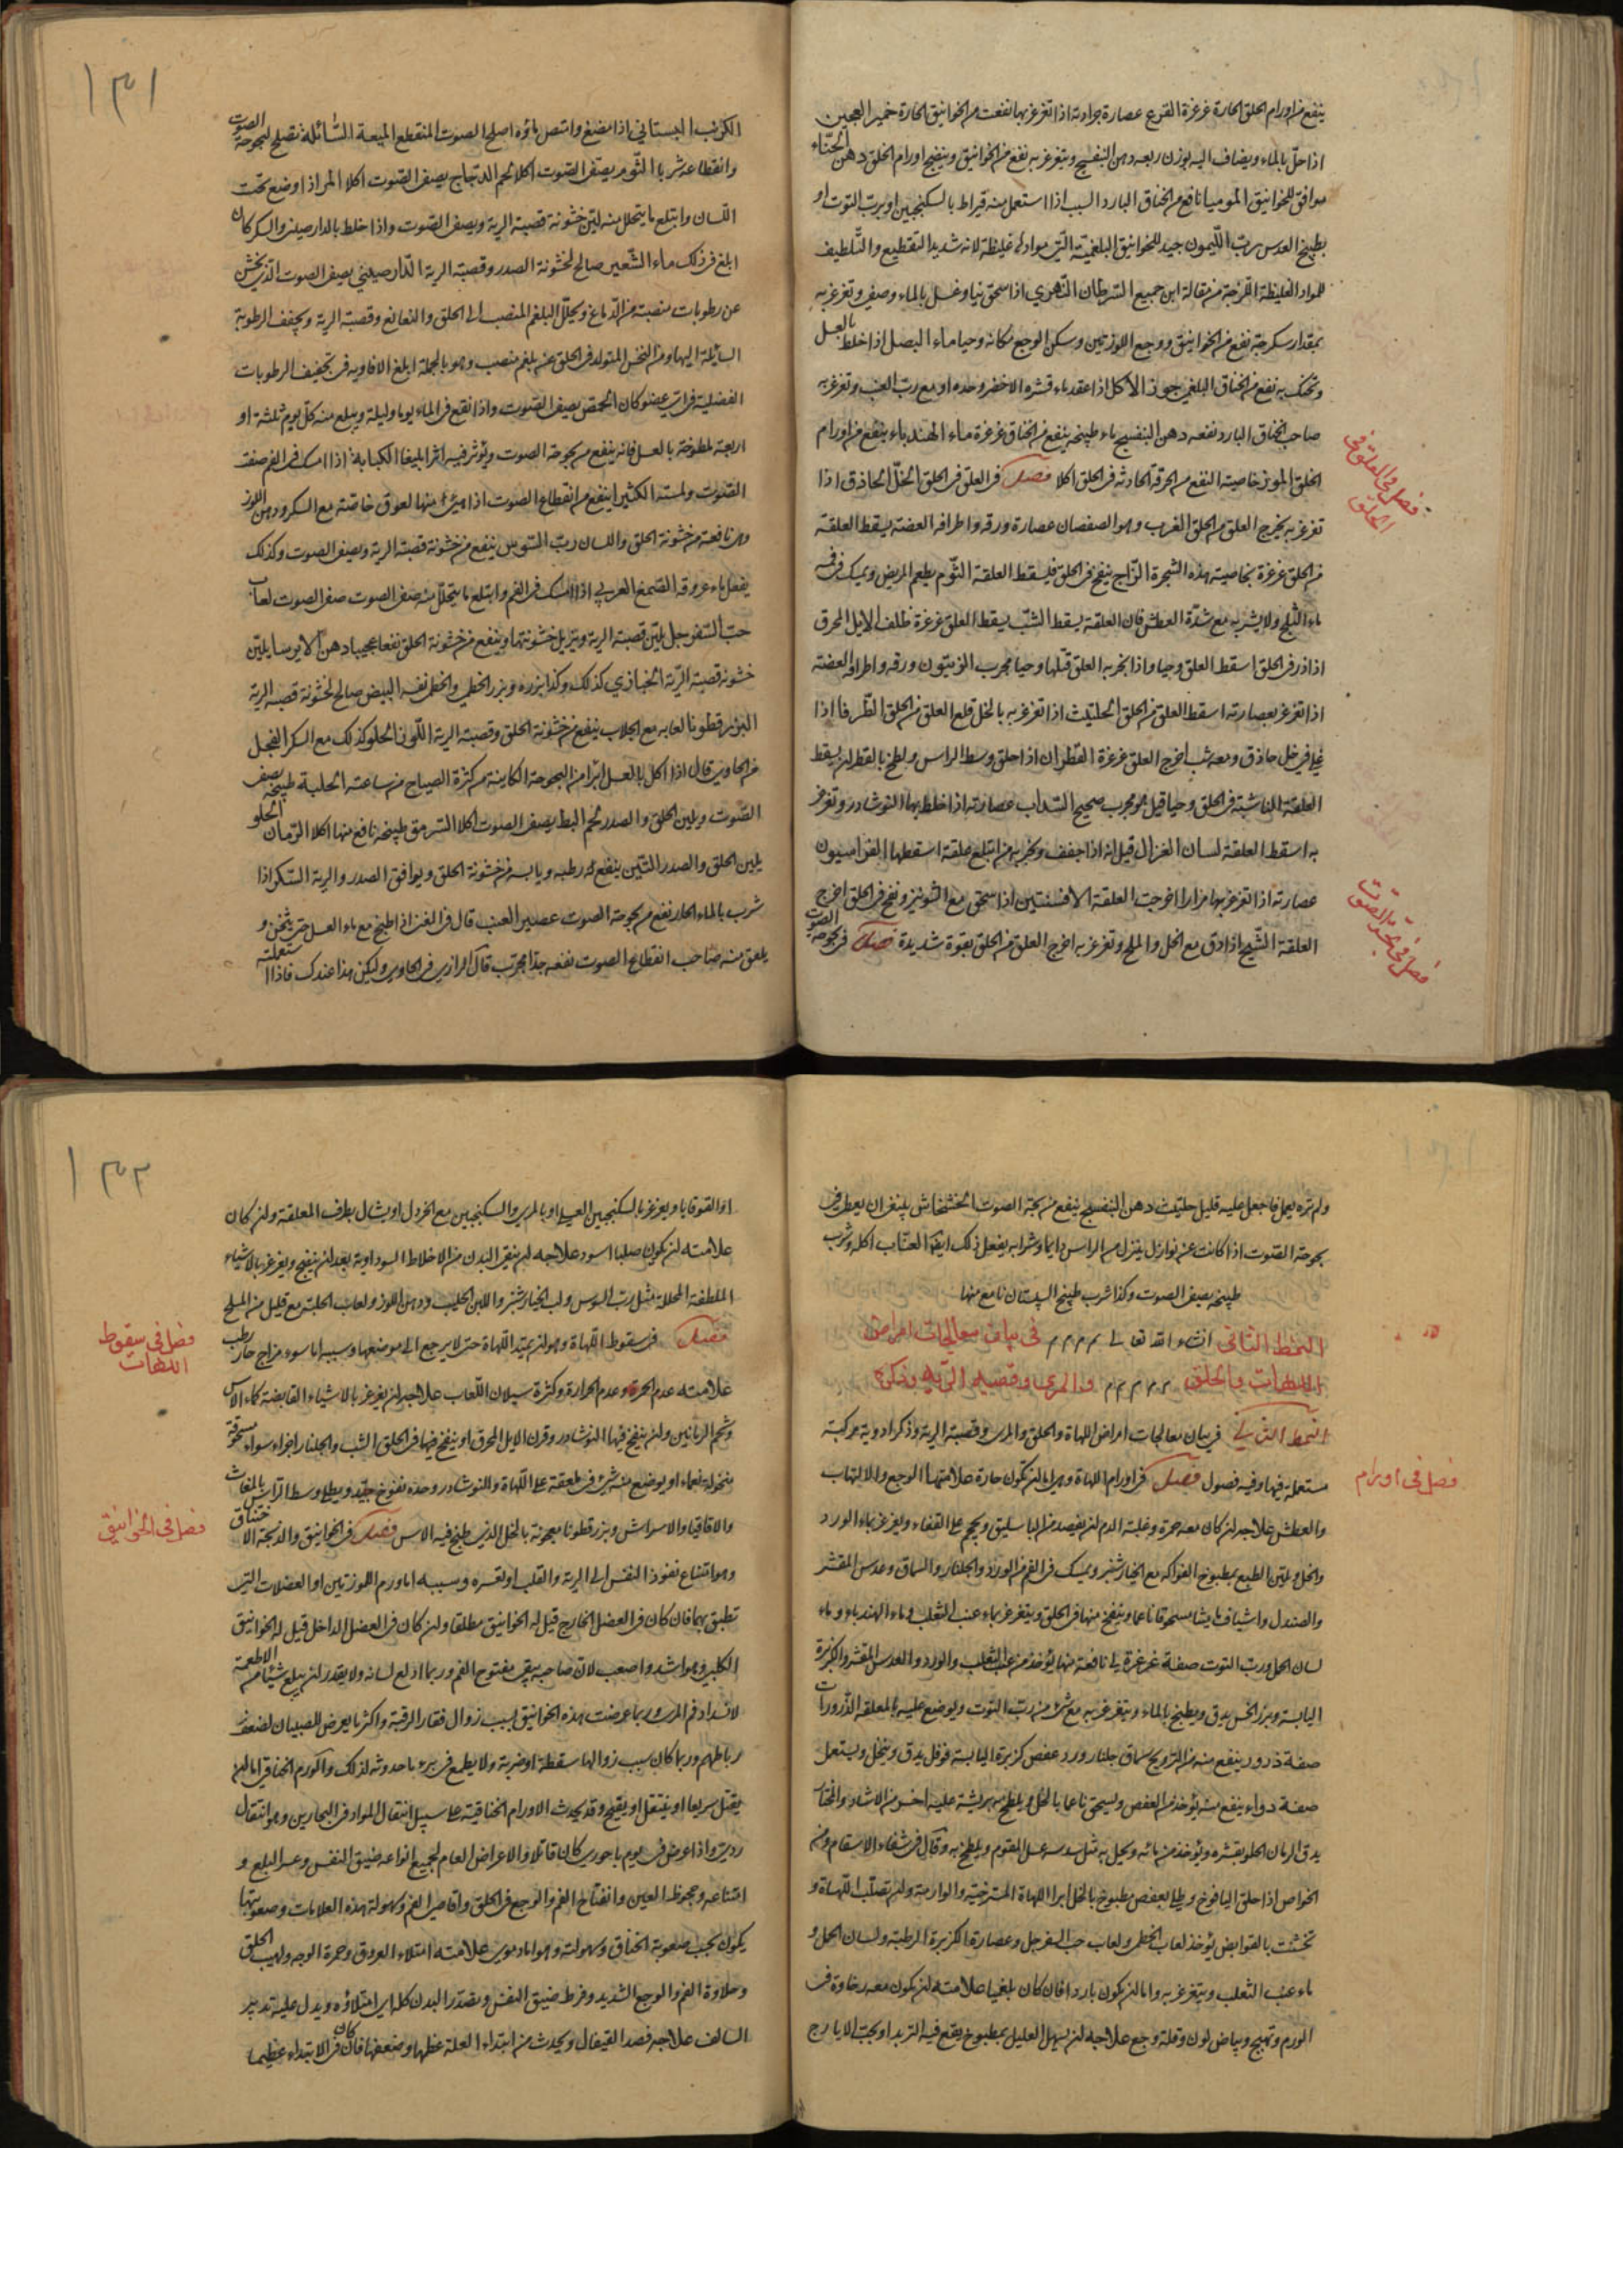 ينفع من اورام الحلق الحارة غرغرة القرع عصارة جرادته اذا تغرغر بها نفعت من الخوانيق الحارة خمير العجين
اذا حل بالماء ويضاف اليه بوزن ربعه دهن البنفسج ويتغرغر به نفع من الخوانيق وينضج اورام الحلق دهن الحنّاء
موافق للخوانيق الموميا نافع من الخناق البارد السبب اذا استعمل منه قيراط بالسكنجبين او برب التوت او
بطبيخ العدس رب الليمون جيد للخوانيق البلغمية التي موادها غليظة لانه شديد التقطيع والتلطيف
للمواد الغليظة اللزجة من مقالة ابن جميع السرطان النهري اذا سحق نيا وغسل بالماء وصفي وتغرغر به
بمقدار سكرجة نفع من الخوانيق ووجع اللوزتين وسكن الوجع مكانه وحيا ماء البصل اذا خلط بالعسل
وتحنك به نفع من الخناق البلغمي جوز الاكل اذا عقد ماء قشره الاخضر وحده او مع رب العنب وتغرغر به
صاحب الخناق البارد نفعه دهن البنفسج ماء طبيخه ينفع من الخناق غرغرة ماء الهندباء ينفع من اورام
الحلق الموز خاصيته النفع من الحرقة الحادثة في الحلق اكلا فصل في العلق في الحلق الخل الحاذق اذا
فصل في العلق في
الحلق
تغرغر به يخرج العلق من الحلق الغرب وهو الصفصاف عصارة ورقه واطرافه الغضة يسقط العلقة
من الحلق غرغرة بخاصيته هذه الشجرة الزاج ينفخ في الحلق فيسقط العلقة الثوم يطعم المريض ويمسك في فمه
ماء الثلج ولا يشربه مع شدة العطش فان العلقة يسقط الشب يسقط العلق غرغرة ظلف الايل المحرق
اذا ذر في الحلق اسقط العلق وحيا واذا بخر به العلق قتلها وحيا مجرب الزيتون ورقه واطرافه الغضة
اذا تغرغر بعصارته اسقط العلق من الحلق الحلتيت اذا تغرغر به بالخل قلع العلق من الحلق الطرفا اذا
غلي في خل حاذق ومعه شب اخرج العلق غرغرة القطران اذا حلق وسط الراس ولطخ بالقطران يسقط
العلقة الناشبة في الحلق وحيا قيل هو مجرب صحيح السذاب عصارته اذا خلط بها النوشادر وتغرغر
به اسقط العلقة لسان الغزال قيل انه اذا جفف وبخر به من ابتلع علقة اسقطها الفراسيون
عصارته اذا تغرغر بها مرارا اخرجت العلقة الافسنتين اذا سحق مع الشونيز ونفخ في الحلق اخرج
العلقة الشيح اذا دق مع الخل والملح وتغرغر به اخرج العلق من الحلق بقوة شديدة فصل في بحوحة الصوت
فصل في بحة الصوت
١٣١
الكرنب البستاني اذا مضغ وامتص ماؤه اصلح الصوت المنقطع الميعة السائلة تصلح لبحوحة الصوت
وانقطاعه شربا الثوم يصفي الصوت اكلا لحم الدجاج يصفي الصوت اكلا المر اذا وضع تحت
اللسان وابتلع ما يتحلل منه لين خشونة قصبة الرية ويصفي الصوت واذا خلط بالدارصيني والسكر كان
ابلغ في ذلك ماء الشعير صالح لخشونة الصدر وقصبة الرية الدارصيني يصفي الصوت الذي يخشن
عن رطوبات منصبة من الدماغ ويحلل البلغم المنصب الى الحلق والنغانغ وقصبة الرية ويجفف الرطوبة
السائلة اليها ومن النخس المتولد في الحلق عن بلغم منصب وهو بالجملة ابلغ الافاويه في تجفيف الرطوبات
الفضلية في اي عضو كان الحمص يصفي الصوت واذا نقع في الماء يوما وليلة ويبلع منه كل يوم ثلثة او
اربعة ملطوخة بالعسل فانه ينفع من بحوحة الصوت ويؤثر فيه اثرا بليغا الكبابة اذا امسك في الفم صفت
الصوت ولمسته الكثيرا ينفع من انقطاع الصوت اذا هيئ منها لعوق خاصة مع السكر ودهن اللوز
وهي نافعة من خشونة الحلق واللسان رب السوس ينفع من خشونة قصبة الرية ويصفي الصوت وكذلك
يفعل ماء عروقه الصمغ العربي اذا امسك في الفم وابتلع ما يتحلل منه صفى الصوت لعاب
حب السفرجل يلين قصبة الرية ويزيل خشونتها وينفع من خشونة الحلق نفعا عجيبا دهن الايرسا يلين
خشونة قصبة الرية الخبازي كذلك وكذا بزره وبزر الخطمي والخطمي نفسه البيض صالح لخشونة قصبة الرية
البزر قطونا لعابه مع الجلاب ينفع من خشونة الحلق وقصبة الرية اللوز الحلو كذلك مع السكر الفجل
من الحاوي قال اذا اكل بالعسل ابرا من البحوحة الكاينة من كثرة الصياح من ساعته الحلبة طبيخه يصفي
الصوت ويلين الحلق والصدر لحم البط يصفي الصوت اكلا السرمق طبيخه نافع منها اكلا الرمان الحلو
يلين الحلق والصدر التين ينفع رطبه ويابسه من خشونة الحلق ويوافق الصدر والرية السكر اذا
شرب بالماء الحار نفع من بحوحة الصوت عصير العنب قال في المغني اذا طبخ مع ماء العسل حتى يثخن و
يلعق منه صاحب انقطاع الصوت نفعه جدا مجرب قال الرازي في الحاوي وليكن هذا عندك فاذا استعملته
ولم تره يعمل فاجعل عليه قليل حلتيت دهن البنفسج ينفع من بحة الصوت الخشخاش ينفع
بحوحة الصوت اذا كانت عن نوازل ينزل من الراس دايما وشرابه يفعل ذلك ايضا العناب اكله وشرب
طبيخه يصفي الصوت وكذا شرب طبيخ السپستان نافع منها
النمط الثاني انشاء الله تعالى م م م م في بيان معالجات امراض
اللهات والحلق م م م م م والمري وقصبة الرية وذكر
النمط الثاني في بيان معالجات امراض اللهاة والحلق والمري وقصبة الرية وذكر ادوية مركبة
مستعملة فيها وفيه فصول فصل في اورام اللهاة وهي اما ان يكون حارة علامتها الوجع والالتهاب
فصل في اورام
والعطش علاجه ان كان معه حمرة وغلبة الدم ان يفصد من الباسليق ويحجم على القفاء ويغرغر بماء الورد
والخل ويلين الطبع بمطبوخ الفواكه مع الخيارشنبر ويمسك في الفم من الورد والجلنار والسماق وعدس المقشر
والصندل واشياف ماميثا مسحوقا ناعما وينفخ منها في الحلق ويتغرغر بماء عنب الثعلب وماء الهندباء وماء
لسان الحمل ورب التوت صفة غرغرة نافعة منها يؤخذ من عنب الثعلب والورد والعدس المقشر والكزبرة
اليابسة وبزر الخس يدق ويطبخ بالماء ويتغرغر به مع شئ من رب التوت ويوضع عليه بالملعقة الذرورات
صفة ذرور ينفع منه سماق جلنار ورد عفص كزبرة اليابسة فوفل يدق وينخل ويستعمل
صفة دواء ينفع منه يؤخذ من العفص ويسحق ناعما بالخل ويلطخ بريشة عليه
يدق الرمان الحلو بقشره ويؤخذ من مائه ويحل به مثل سدسه عسل المقوم ويلطخ به وقال في شفاء الاسقام ومن
الخواص اذا حلق اليافوخ وطلي بعفص مطبوخ بالخل ابرا اللهاة المسترخية والوارمة وان تصلب اللهاة و
تخشنت بالقوابض يؤخذ لعاب الخطمي ولعاب حب السفرجل وعصارة الكزبرة الرطبة ولسان الحمل و
ماء عنب الثعلب ويتغرغر به واما ان يكون باردا فان كان بلغميا علامته ان يكون معه رخاوة في
الورم وتهيج وبياض لون وقلة وجع علاجه ان يسهل العليل بمطبوخ يقع فيه التربد او بحب الايارج
١٣٢
او القوقايا ويغرغر بالسكنجبين العسلي او بالمري والسكنجبين مع الخردل او يشال بطرف المعلقة وان كان
علامته ان يكون صلبا اسود علاجه ان ينقى البدن من الاخلاط السوداوية بعد ان ينضج ويغرغر بالاشياء
الملطفة المحللة مثل رب السوس ولب الخيارشنبر واللبن الحليب ودهن اللوز ولعاب الحلبة مع قليل من الملح
فصل في سقوط اللهاة وهو ان يمتد اللهاة حتى لا يرجع الى موضعها وسببه اما سوء مزاج حار رطب
فصل في سقوط
اللهات
علامته عدم الحمرة وعدم الحرارة وكثرة سيلان اللعاب علاجه ان يغرغر بالاشياء القابضة كماء الاس
وشحم الرمانين وان ينفخ فيها النوشادر وقرن الايل المحرق او ينفخ فيها في الحلق الشب والجلنار اجزاء سواء مسحوقة
منخولة نعماء او يوضع منه شئ في ملعقة على اللهاة والنوشادر وحده نفوخ جيد ويطلى وسط الراس بالمغاث
والاقاقيا والاسراش وبزر قطونا معجونة بالخل الذي طبخ فيه الاس فصل في الخوانيق والذبحة الاختناق
فصل في الخوانيق
وهو امتناع نفوذ النفس الى الرية والقلب او تعسره وسببه اما ورم اللوزتين او العضلات التي
تطبق بهما فان كان في العضل الخارج قيل له الخوانيق مطلقا وان كان في العضل الداخل قيل له الخوانيق
الكلبي وهو اشد واصعب لان صاحبه يبقى مفتوح الفم وربما ادلع لسانه ولا يقدر ان يبلع شيئا من الاطعمة
لانسداد فم المري وربما عرضت هذه الخوانيق بسبب زوال فقار الرقبة واكثر ما يعرض للصبيان لضعف
رباطهم وربما كان سبب زوالها سقطة او ضربة ولا يطمع في برء ما حدوثه لذلك والورم الخناقي اما ان
يقتل سريعا او ينتقل او يقيح وقد يحدث الاورام الخناقية على سبيل انتقال المواد في البحارين وهو انتقال
ردي واذا عرض في يوم باحوري كان قاتلا والاعراض العام لجميع انواعه ضيق النفس وعسر البلع و
امتناعه وجحوظ العين وانفتاح الفم والوجع في الحلق واقاصي الفم وسهولة هذه العلامات وصعوبتها
يكون بحسب صعوبة الخناق وسهولته وهو اما دموي علامته امتلاء العروق وحمرة الوجه ولهيب الحلق
وحلاوة الفم والوجع الشديد وفرط ضيق النفس وتمدد البدن كله اي امتلاؤه ويدل عليه تدبير
السالف علاجه فصد القيفال ويحدث من ابتداء العلة عظمها وضعفها فان كان في الابتداء عظيما